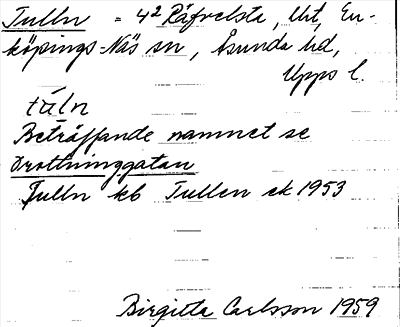 Tulln = 4² Räfvelsta, lht, En-
köpings-Näs sn, Åsunda hd,
Upps l.
túln
Beträffande namnet se
Drottninggatan
Tulln kb Tullen ek 1953
Birgitta Carlsson 1959